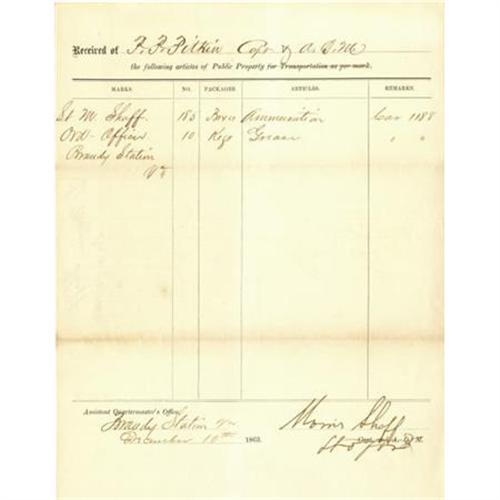 Received of P. P. Pitkin Capt & A. Q. M
the following articles of Public Property for Transportation as per mark.
MARKS. NO. PACKAGES ARTICLES. REMARKS.
Lt M. Shaff. 185 Boxes Ammunition Car 1188
Ord- Officer 10 Kegs Grease " "
Brandy Station
Va
Assistant Quartermaster's Office,
Brandy Station Va
December 10th 1863.
Morris Shaff